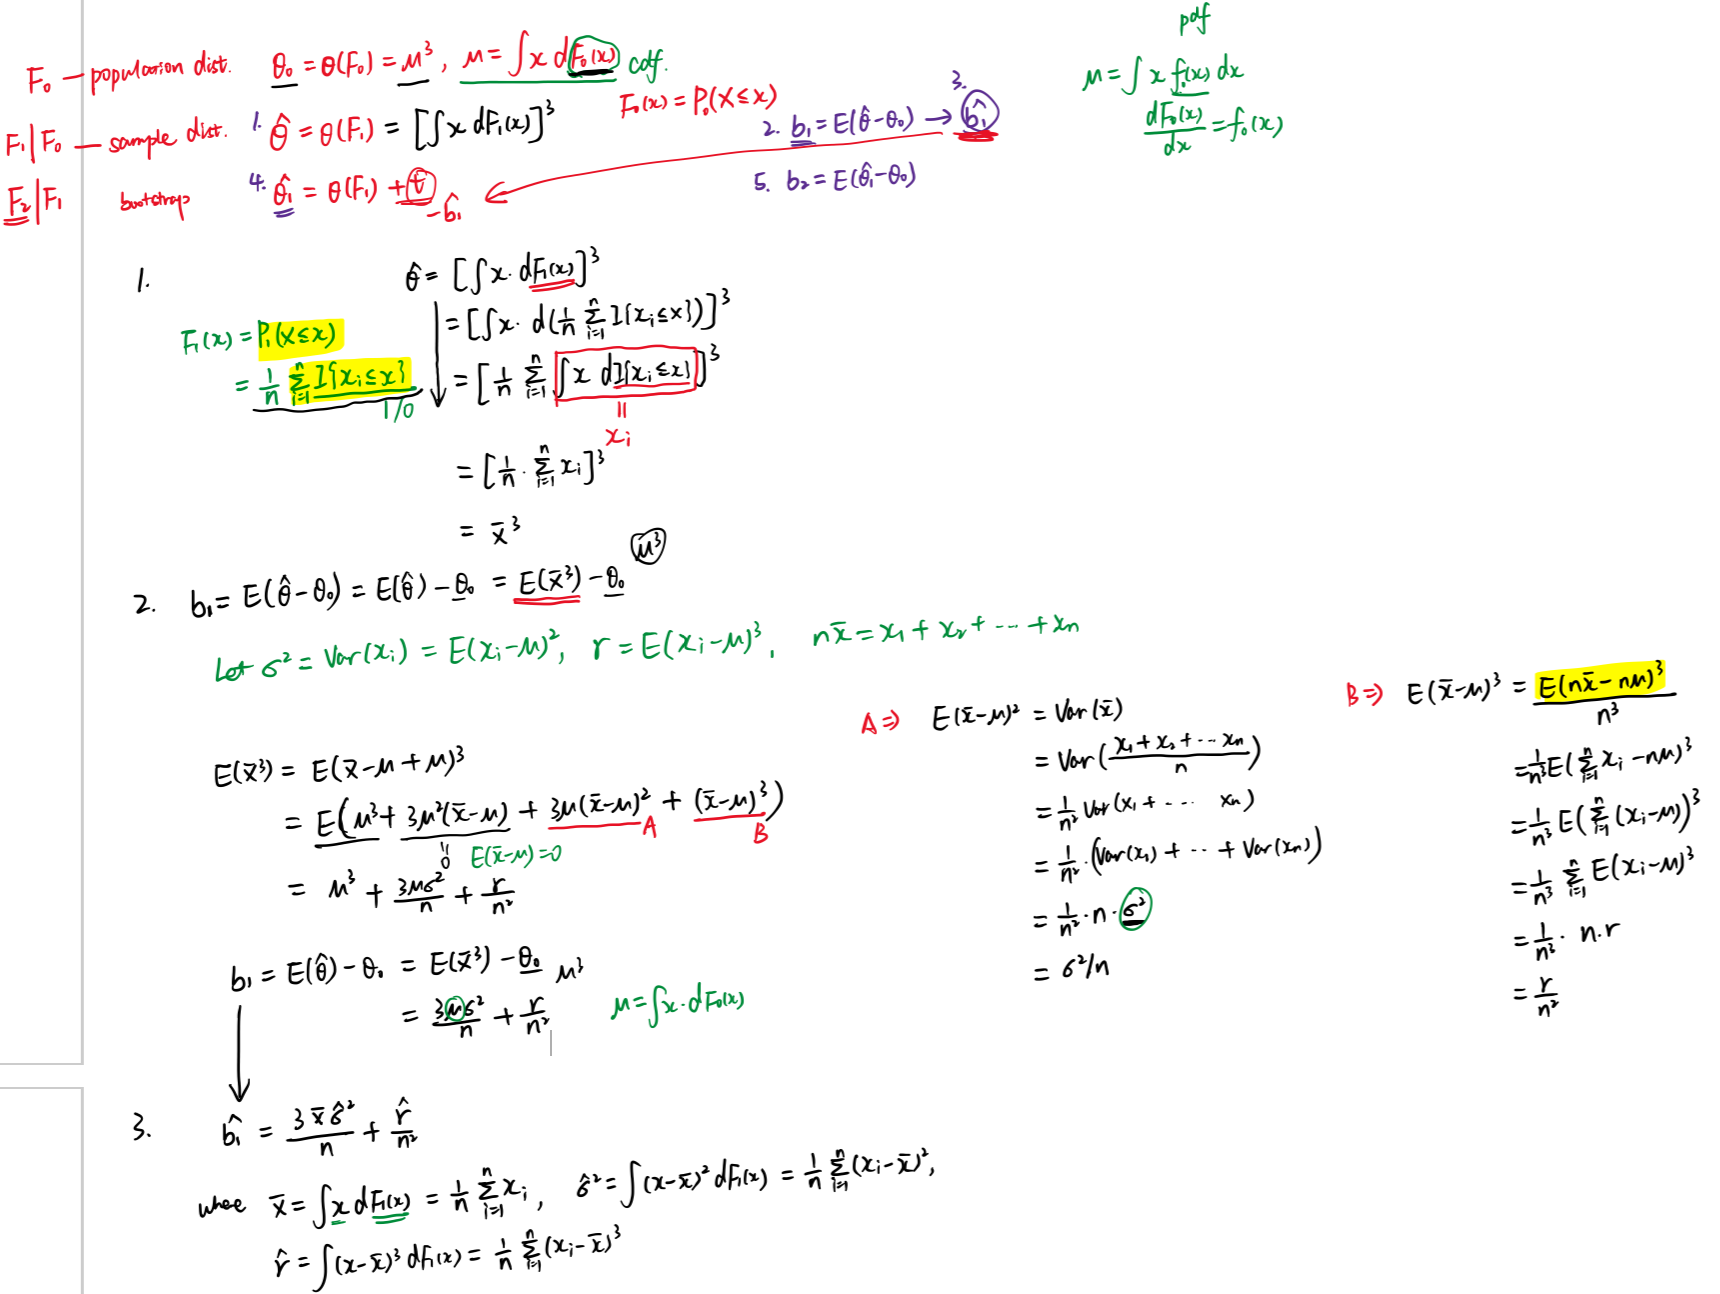 pdf
F₀ — population dist. θ₀ = θ(F₀) = μ³, μ = ∫ x dF₀(x) cdf.
μ = ∫ x f₀(x) dx
F₀(x) = P₀(X ≤ x)
dF₀(x)/dx = f₀(x)
F₁|F₀ — sample dist. 1. θ̂ = θ(F₁) = [∫ x dF₁(x)]³
2. b₁ = E(θ̂ - θ₀) → 3. b̂₁
F₂|F₁ bootstrap 4. θ̂₁ = θ(F₁) + t
- b̂₁
5. b₂ = E(θ̂₁ - θ₀)
1. θ̂ = [∫ x · dF₁(x)]³
F₁(x) = P₁(X ≤ x)
= 1/n Σᵢ₌₁ⁿ I{xᵢ ≤ x}
1/0
= [∫ x · d(1/n Σᵢ₌₁ⁿ I{xᵢ ≤ x})]³
= [1/n Σᵢ₌₁ⁿ ∫ x dI{xᵢ ≤ x}]³
||
xᵢ
= [1/n · Σᵢ₌₁ⁿ xᵢ]³
= x̄³
2. b₁ = E(θ̂ - θ₀) = E(θ̂) - θ₀ = E(x̄³) - θ₀ μ³
Let σ² = Var(xᵢ) = E(xᵢ - μ)², r = E(xᵢ - μ)³, nx̄ = x₁ + x₂ + ··· + xₙ
E(x̄³) = E(x̄ - μ + μ)³
= E(μ³ + 3μ²(x̄ - μ) + 3μ(x̄ - μ)² + (x̄ - μ)³)
A B
|| 0 E(x̄ - μ) = 0
= μ³ + 3μσ²/n + r/n²
b₁ = E(θ̂) - θ₀ = E(x̄³) - θ₀ μ³
= 3μσ²/n + r/n² μ = ∫ x · dF₀(x)
A ⇒ E(x̄ - μ)² = Var(x̄)
= Var((x₁ + x₂ + ··· xₙ)/n)
= 1/n² Var(x₁ + ···· xₙ)
= 1/n² · (Var(x₁) + ·· + Var(xₙ))
= 1/n² · n · σ²
= σ²/n
B ⇒ E(x̄ - μ)³ = E(nx̄ - nμ)³/n³
= 1/n³ E(Σᵢ₌₁ⁿ xᵢ - nμ)³
= 1/n³ E(Σᵢ₌₁ⁿ (xᵢ - μ))³
= 1/n³ Σᵢ₌₁ⁿ E(xᵢ - μ)³
= 1/n³ · n · r
= r/n²
3. b̂₁ = 3x̄σ̂²/n + r̂/n²
where x̄ = ∫ x dF₁(x) = 1/n Σᵢ₌₁ⁿ xᵢ, σ̂² = ∫ (x - x̄)² dF₁(x) = 1/n Σᵢ₌₁ⁿ (xᵢ - x̄)²,
r̂ = ∫ (x - x̄)³ dF₁(x) = 1/n Σᵢ₌₁ⁿ (xᵢ - x̄)³